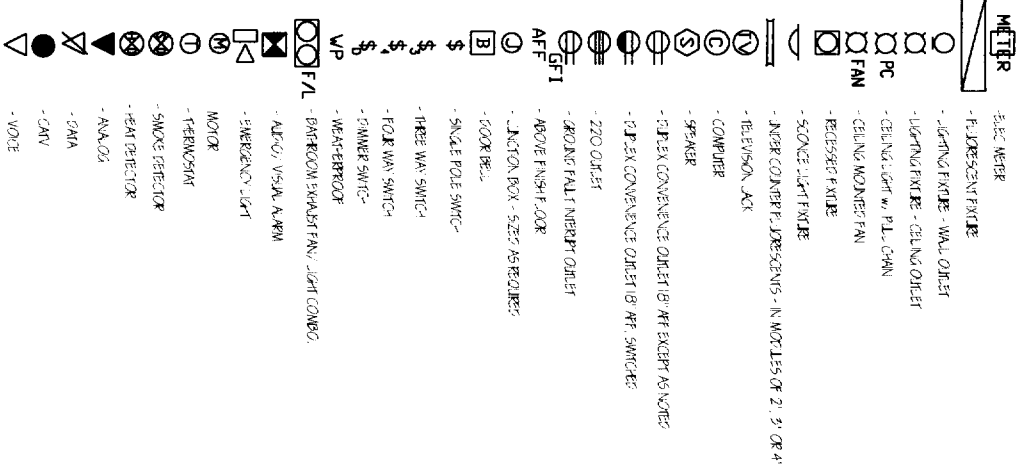 METER - ELEC METER
- FLUORESCENT FIXTURE
- LIGHTING FIXTURE - WALL OUTLET
- LIGHTING FIXTURE - CEILING OUTLET
PC - CEILING LIGHT W/ PULL CHAIN
FAN - CEILING MOUNTED FAN
- RECESSED FIXTURE
- SCONCE LIGHT FIXTURE
- UNDER COUNTER FLUORESCENTS - IN MODULES OF 2', 3' OR 4'
TV - TELEVISION JACK
C - COMPUTER
S - SPEAKER
- DUPLEX CONVENIENCE OUTLET 18" AFF EXCEPT AS NOTED
- DUPLEX CONVENIENCE OUTLET 18" AFF. SWITCHED
- 220 OUTLET
GFI - GROUND FAULT INTERUPT OUTLET
AFF - ABOVE FINISH FLOOR
J - JUNCTION BOX - SIZED AS REQUIRED
B - DOOR BELL
$ - SINGLE POLE SWITCH
$3 - THREE WAY SWITCH
$4 - FOUR WAY SWITCH
$D - DIMMER SWITCH
WP - WEATHERPROOF
F/L - BATHROOM EXHAUST FAN/ LIGHT COMBO.
- AUDIO/ VISUAL ALARM
- EMERGENCY LIGHT
M MOTOR
T - THERMOSTAT
- SMOKE DETECTOR
- HEAT DETECTOR
- ANALOG
- DATA
- CATV
- VOICE